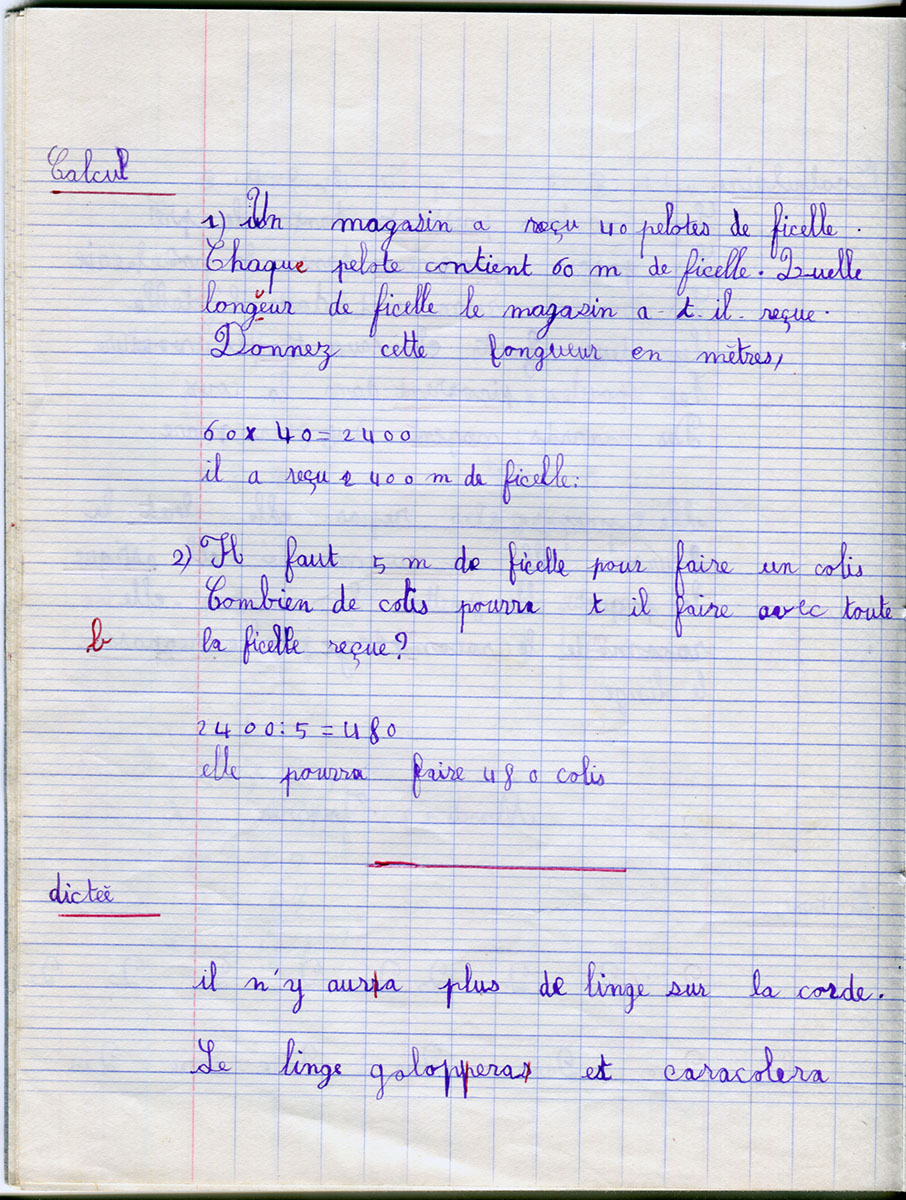 Calcul
1) Un magasin a reçu 40 pelotes de ficelle.
Chaque pelote contient 60 m de ficelle. Quelle
longueur de ficelle le magasin a-t-il-reçue.
Donnez cette longueur en mètres,
60 x 40 = 2400
il a reçu 2400 m de ficelle.
2) Il faut 5 m de ficelle pour faire un colis
Combien de colis pourra t il faire avec toute
b
la ficelle reçue?
2400:5=480
elle pourra faire 480 colis
dicteé
il n'y aura plus de linge sur la corde.
Le linge galoppera et caracolera